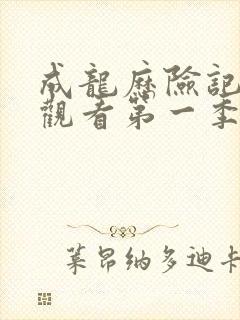 成龍歷險記
觀看第一季
萊昂纳多迪卡